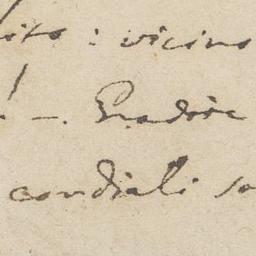 ito: vicino
! -. Gradire
cordiali sa